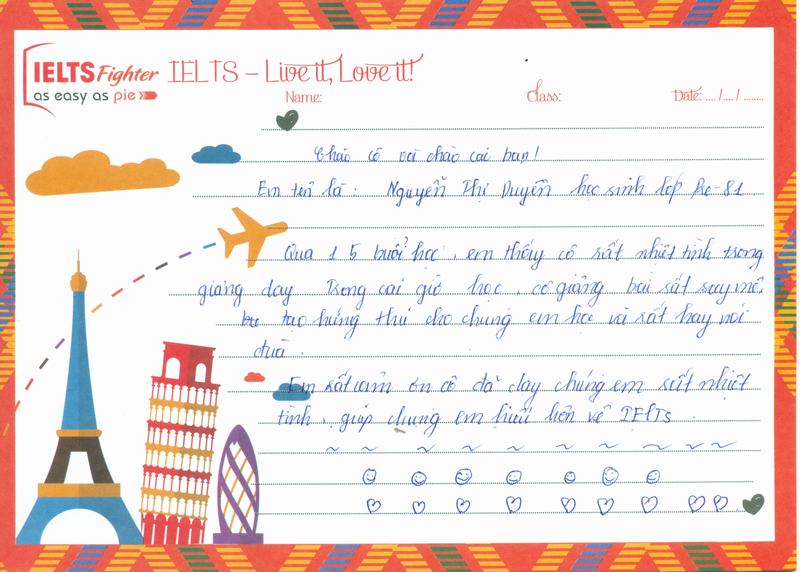 IELTS Fighter IELTS – Live it, Love it!
as easy as pie
Name: Class: Date: .... /.... / .......
Chào cô và chào các bạn!
Em tên là : Nguyễn Thị Duyên học sinh lớp Pre-81
Qua 15 buổi học , em thấy cô rất nhiệt tình trong
giảng dạy Trong các giờ học , cô giảng bài rất say mê,
tạo hứng thú cho chúng em học và rất hay nói
đùa .
Em rất cảm ơn cô đã dạy chúng em rất nhiệt
tình , giúp chúng em hiểu hơn về IELTS